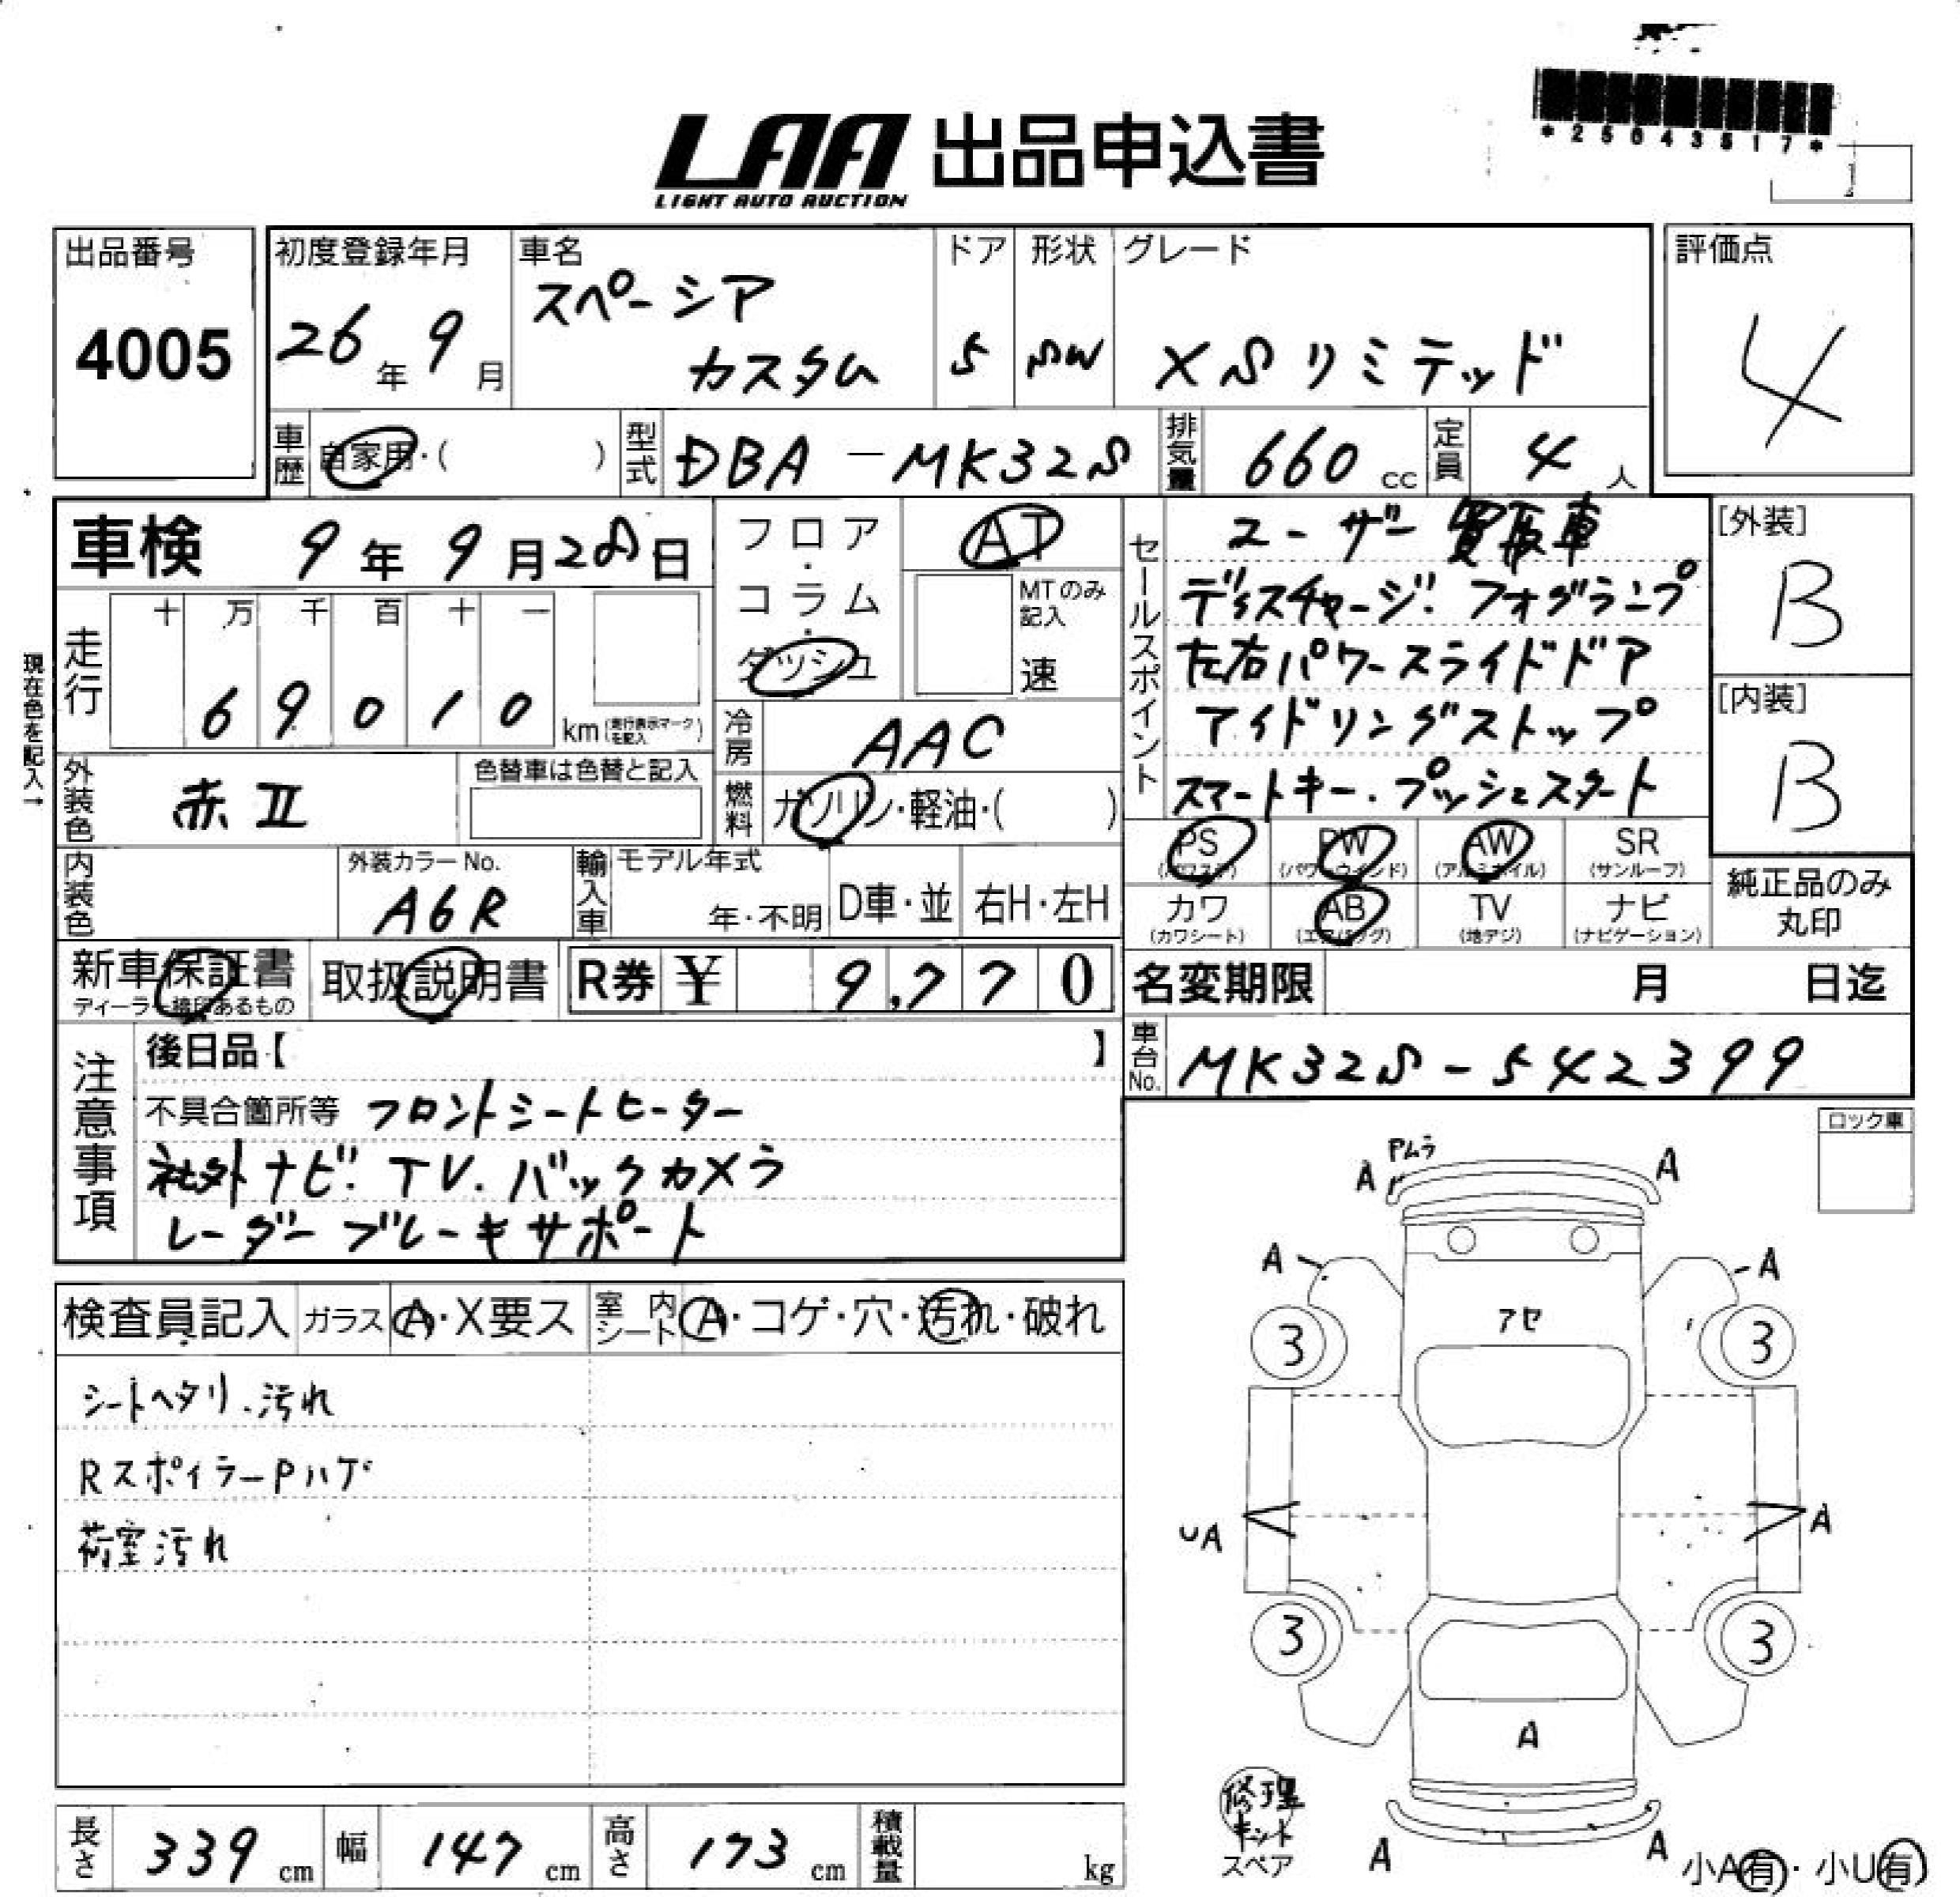 *25043517*
LAA 出品申込書
LIGHT AUTO AUCTION
出品番号
4005
初度登録年月
26年9月
車名
スペーシア
カスタム
ドア
5
形状
SW
グレード
XSリミテッド
評価点
4
車歴 自家用・( )
型式 DBA-MK32S
排気量 660 cc
定員 4 人
車検 9年9月28日
フロア・コラム・ダッシュ
AT
MTのみ記入
速
セールスポイント
ユーザー買取車
ディスチャージ.フォグランプ
左右パワースライドドア
アイドリングストップ
スマートキー.プッシュスタート
[外装]
B
[内装]
B
現在色を記入→
走行
十 万 千 百 十 一
6 9 0 1 0 km(走行表示マークを記入)
冷房 AAC
燃料 ガソリン・軽油・( )
外装色 赤II
色替車は色替と記入
内装色
外装カラーNo.
A6R
輸入車
モデル年式
年・不明
D車・並
右H・左H
PS (パワステ)
PW (パワーウィンド)
AW (アルミホイル)
SR (サンルーフ)
カワ (カワシート)
AB (エアバッグ)
TV (地デジ)
ナビ (ナビゲーション)
純正品のみ
丸印
新車保証書
ディーラー捺印あるもの
取扱説明書
R券 ¥ 9,770
名変期限 月 日迄
車台No. MK32S-542399
注意事項
後日品【 】
不具合箇所等 フロントシートヒーター
社外ナビ.TV.バックカメラ
レーダーブレーキサポート
ロック車
検査員記入
ガラス A・X要ス
室内シート A・コゲ・穴・汚れ・破れ
シートヘタリ.汚れ
RスポイラーPハゲ
荷室汚れ
Pムラ
A A
A A
アセ
3 3
UA A
3 3
A
A A
修理
キット
スペア
小A有・小U有
長さ 339 cm
幅 147 cm
高さ 173 cm
積載量 kg